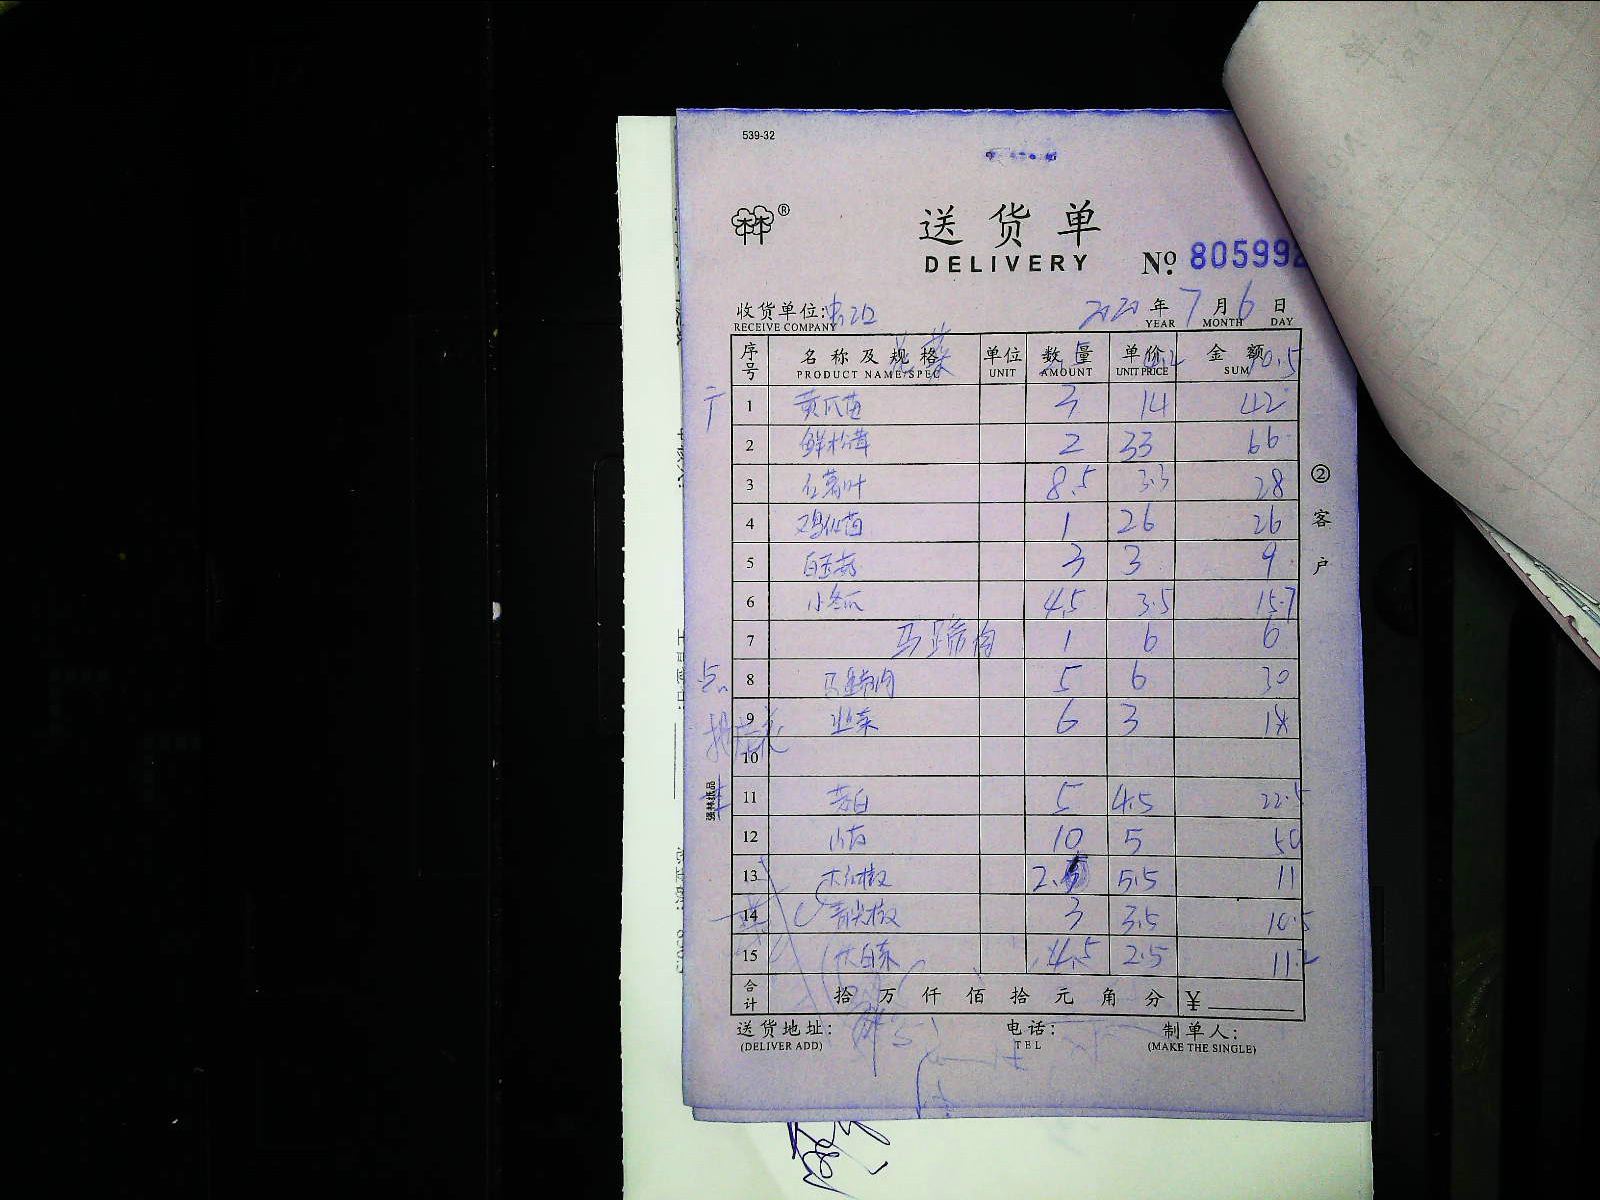 539-32
送货单
DELIVERY
№ 805992
收货单位:
RECEIVE COMPANY
2020 年 7 月 6 日
YEAR MONTH DAY
序号 名称及规格 单位 数量 单价 金额
PRODUCT NAME/SPEC UNIT AMOUNT UNIT PRICE SUM
1 黄瓜苗 3 14 42
2 鲜松茸 2 33 66
3 红薯叶 8.5 3.3 28
4 鸡枞菌 1 26 26
5 白玉菇 3 3 9
6 小冬瓜 4.5 3.5 15.7
7 马蹄肉 1 6 6
8 马蹄肉 5 6 30
9 韭菜 6 3 18
10
11 茭白 5 4.5 22.5
12 山药 10 5 50
13 2. 5.5 11
14 青尖椒 3 3.5 10.5
15 大白菜 4.5 2.5 11.2
合计 拾 万 仟 佰 拾 元 角 分 ¥
送货地址: 电话: 制单人:
(DELIVER ADD) TEL (MAKE THE SINGLE)
② 客户
强林纸品